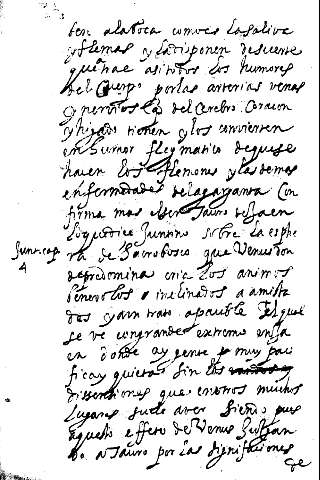 ten a la boca como es la saliva
y flemas y la disponen de suerte
que trae a si todos los humores
del Cuerpo por las arterias venas
y nervios q̃ del Cerebro Coraçon
y higado tienen y los convierten
en humor flegmatico de que se
hacen los flemones y las demas
enfermedades de la garganta Con
firma mas este Tauro de Jaen
lo que dice Juntino sobre la esphe
ra de Sacrobosco que Venus don
de predomina cria los animos
benevolos e inclinados a amista
des y a un trato apacible el qual
se ve con grande extremo en Ja
en donde ay gente muy paci
fica y quieta sin las
dissensiones que en otros muchos
lugares suele aver siendo pues
aqueste effeto de Venus
a Tauro por las dignificaciones
que
Junt. cap.
4